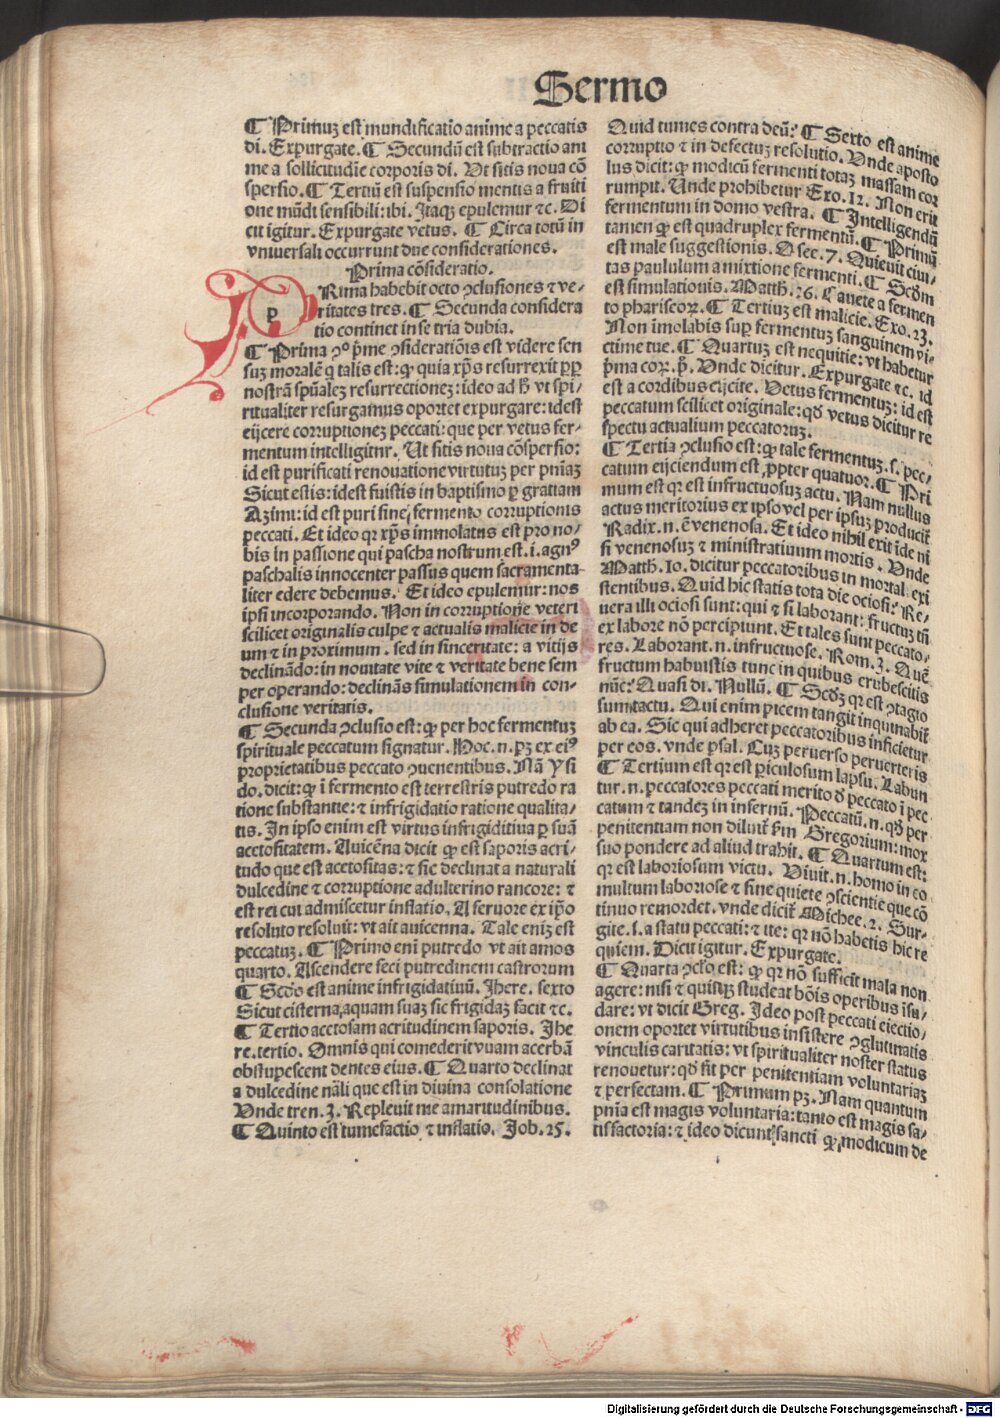 Sermo
¶ Primuꝫ est mundificatio anime a peccatis
di. Expurgate. ¶ Secundū est subtractio ani
me a sollicitudīe corporis di. Vt sitis noua cō
spersio. ¶ Tertiū est suspensio mentis a fruiti
one mūdi sensibili: ibi. Itaqꝫ epulemur ⁊c. Di
cit igitur. Expurgate vetus. ¶ Circa totū in
vniuersali occurrunt due considerationes.
Prima cōsideratio.
PRima habebit octo ↄclusiones ⁊ ve⸗
ritates tres. ¶ Secunda considera
tio continet in se tria dubia.
¶ Prima ↄº p̄me ↄsideratiōis est videre sen
suꝫ moralē q talis est: ꝙ quia xp̄s resurrexit ꝓp̄
nostrā spūaleꝫ resurrectioneꝫ: ideo ad h̄ vt spi⸗
ritualiter resurgamus oportet expurgare: idest
eijcere corruptioneꝫ peccati: que per vetus fer⸗
mentum intelligitur. Ut sitis noua cōspersio:
id est purificati renouatione virtutuꝫ per pn̄iaꝫ
Sicut estis: idest fuistis in baptismo ꝑ gratiam
Azimi: id est puri sine, fermento corruptionis
peccati. Et ideo qꝛ xp̄s immolatus est pro no⸗
bis in passione qui pascha nostrum est. i. agnꝰ
paschalis innocenter passus quem sacramenta⸗
liter edere debemus. Et ideo epulemur: nos
ipsi incorporando. Non in corruptione veteri
scilicet originalis culpe ⁊ actualis malicie in de
um ⁊ in proximum. sed in sinceritate: a vitijs
declinādo: in nouitate vite ⁊ veritate bene sem
per operando: declinās simulationem in con⸗
clusione veritatis.
¶ Secunda ↄclusio est: ꝙ per hoc fermentuꝫ
spirituale peccatum signatur. Hoc. n. pꝫ ex eiꝰ
proprietatibus peccato ↄuenentibus. Nā Ysi
do. dicit: ꝙ ī fermento est terrestris putredo ra
tione substantie: ⁊ infrigidatio ratione qualita⸗
tis. In ipso enim est virtus infrigiditiua ꝑ suā
acetositatem. Auicēna dicit ꝙ est saporis acri⸗
tudo que est acetositas: ⁊ sic declinat a naturali
dulcedine ⁊ corruptione adulterino rancore: ⁊
est rei cui admiscetur inflatio. A feruore ex ip̄o
resoluto resoluit: vt ait auicenna. Tale eniꝫ est
peccatuꝫ. ¶ Primo eni putredo vt ait amos
quarto. Ascendere feci putredinem castrorum
¶ Scd̄o est anime infrigidatiuū. Jhere. sexto
Sicut cisterna, aquam suaꝫ sic frigidaꝫ facit ⁊c.
¶ Tertio acetosam acritudinem saporis. Jhe
re. tertio. Omnis qui comederit vuam acerbā
obstupescent dentes eius. ¶ Quarto declinat
a dulcedine nāli que est in diuina consolatione
Vnde tren. 3. Repleuit me amaritudinibus.
¶ Quinto est tumefactio ⁊ inflatio. Job. 15.
Quid tumes contra deū: ¶ Sexto est anime
corruptio ⁊ in defectuꝫ resolutio. Vnde aposto
lus dicit: ꝙ modicū fermenti totaꝫ massam cor
rumpit. Unde prohibetur Exo. 12. Non erit
fermentum in domo vestra. ¶ Intelligendū
tamen ꝙ est quadruplex fermentū. ¶ Primū
est male suggestionis. Osee. 7. Quieuit ciui⸗
tas paululum a mixtione fermenti. ¶ Scd̄m
est simulationis. Matth. 16. Cauete a fermen
to phariseoꝝ. ¶ Tertiuꝫ est malicie. Exo. 23.
Non īmolabis sup̄ fermentuꝫ sanguinem vi⸗
ctime tue. ¶ Quartuꝫ est nequitie: vt habetur
p̄ma coꝝ. p̄. Vnde dicitur. Expurgate ⁊c. id
est a cordibus eijcite. Vetus fermentuꝫ: id est
peccatum scilicet originale: qd̄ vetus dicitur re
spectu actualium peccatoruꝫ.
¶ Tertia ↄclusio est: ꝙ tale fermentuꝫ. s. pec⸗
catum eijciendum est, ꝓpter quatuor. ¶ Pri
mum est qꝛ est infructuosuꝫ actu. Nam nullus
actus meritorius ex ipso vel per ipsuꝫ producit̄
Radix. n. ē venenosa. Et ideo nihil exit īde ni
si venenosuꝫ ⁊ ministratiuum mortis. Vnde
Matth. 10. dicitur peccatoribus in mortal. exi
stentibus. Quid hic statis tota die ociosi: Re⸗
uera illi ociosi sunt: qui ⁊ si laborant: fructuꝫ tn̄
ex labore nō percipiunt. Et tales sunt peccato⸗
res. Laborant. n. infructuose. Rom. 3. Quē
fructum habuistis tunc in quibus erubescitis
nūc: Quasi di. Nullū. ¶ Scd̄ꝫ qꝛ est ↄtagio
sum tactu. Qui enim picem tangit inquinabit̄
ab ea. Sic qui adheret peccatoribus inficietur
per eos. vnde psal. Cuꝫ peruerso peruerteris
¶ Tertium est qꝛ est ꝑiculosum lapsu. Labun
tur. n. peccatores peccati merito d̄ peccato ī pec
catum ⁊ tandeꝫ in infernū. Peccatū. n. qd̄ per
penitentiam non diluit̄ ẜm Gregorium: mox
suo pondere ad aliud trahit. ¶ Quartum est:
qꝛ est laboriosum victu. Viuit. n. homo in eo
multum laboriose ⁊ sine quiete ↄscientie que cō
tinuo remordet. vnde dicit̄ Michee. 2. Sur⸗
gite. s. a statu peccati: ⁊ ite: qꝛ nō habetis hic re
quiem. Dicit igitur. Expurgate.
¶ Quarta ↄclo est: ꝙ qꝛ nō sufficit mala non
agere: nisi ⁊ quisqꝫ studeat bōis operibus īsu⸗
dare: vt dicit Greg. Ideo post peccati eiectio⸗
onem oportet virtutibus insistere ↄglutinatis
vinculis caritatis: vt spiritualiter noster status
renouetur: qd̄ fit per penitentiam voluntariaꝫ
⁊ perfectam. ¶ Primum pꝫ. Nam quantum
pn̄ia est magis voluntaria: tanto est magis sa⸗
tisfactoria: ⁊ ideo dicunt sancti ꝙ modicum de
Digitalisierung gefördert durch die Deutsche Forschungsgemeinschaft - DFG